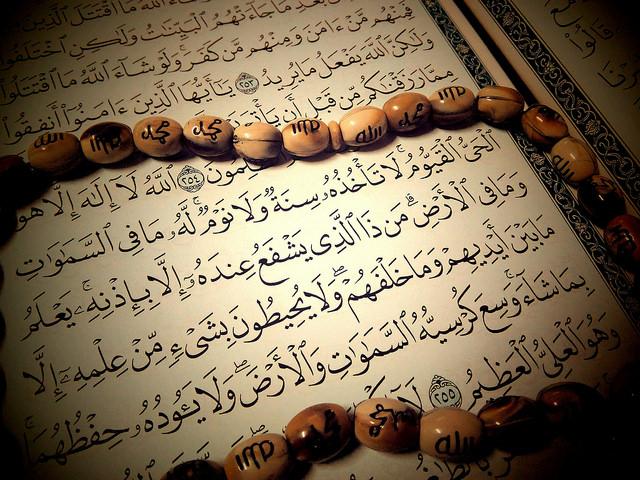 شَآءَ ٱللَّهُ مَا ٱقْتَتَلَ ٱلَّذِينَ
بَعْدِ مَا جَآءَتْهُمُ ٱلْبَيِّنَٰتُ وَلَٰكِنِ ٱخْتَلَفُوا۟
فَمِنْهُم مَّنْ ءَامَنَ وَمِنْهُم مَّن كَفَرَ ۚ وَلَوْ شَآءَ ٱللَّهُ مَا ٱقْتَتَلُوا۟
وَلَٰكِنَّ ٱللَّهَ يَفْعَلُ مَا يُرِيدُ ٢٥٣ يَٰٓأَيُّهَا ٱلَّذِينَ ءَامَنُوٓا۟ أَنفِقُوا۟
مِمَّا رَزَقْنَٰكُم مِّن قَبْلِ أَن يَأْتِىَ
محمد محمد الله محمد الله
٢٥٤ ٱللَّهُ لَآ إِلَٰهَ إِلَّا هُوَ
ٱلْحَىُّ ٱلْقَيُّومُ ۚ لَا تَأْخُذُهُۥ سِنَةٌ وَلَا نَوْمٌ ۚ لَّهُۥ مَا فِى ٱلسَّمَٰوَٰتِ
وَمَا فِى ٱلْأَرْضِ ۗ مَن ذَا ٱلَّذِى يَشْفَعُ عِندَهُۥٓ إِلَّا بِإِذْنِهِۦ ۚ يَعْلَمُ
مَا بَيْنَ أَيْدِيهِمْ وَمَا خَلْفَهُمْ ۖ وَلَا يُحِيطُونَ بِشَىْءٍ مِّنْ عِلْمِهِۦٓ إِلَّا
بِمَا شَآءَ ۚ وَسِعَ كُرْسِيُّهُ ٱلسَّمَٰوَٰتِ وَٱلْأَرْضَ ۖ وَلَا يَـُٔودُهُۥ حِفْظُهُمَا ۚ
وَهُوَ ٱلْعَلِىُّ ٱلْعَظِيمُ ٢٥٥ لَآ
محمد محمد الله